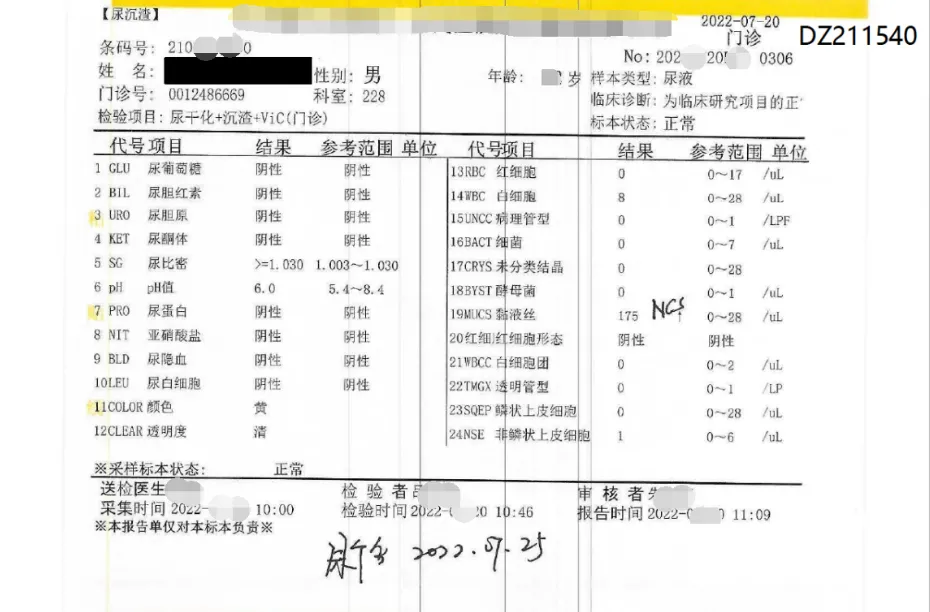 【尿沉渣】
2022-07-20
DZ211540
门诊
条码号: 210 0
No: 202 20 0306
姓 名: 性别: 男 年龄: 岁 样本类型: 尿液
门诊号: 0012486669 科室: 228 临床诊断: 为临床研究项目的正
检验项目: 尿干化+沉渣+ViC(门诊) 标本状态: 正常
代号 项目 结果 参考范围 单位 代号 项目 结果 参考范围 单位
1 GLU 尿葡萄糖 阴性 阴性 13RBC 红细胞 0 0～17 /uL
2 BIL 尿胆红素 阴性 阴性 14WBC 白细胞 8 0～28 /uL
3 URO 尿胆原 阴性 阴性 15UNCC 病理管型 0 0～1 /LPF
4 KET 尿酮体 阴性 阴性 16BACT 细菌 0 0～7 /uL
5 SG 尿比密 >=1.030 1.003～1.030 17CRYS 未分类结晶 0 0～28
6 pH pH值 6.0 5.4～8.4 18BYST 酵母菌 0 0～1 /uL
7 PRO 尿蛋白 阴性 阴性 19MUCS 黏液丝 175 NCS 0～28 /uL
8 NIT 亚硝酸盐 阴性 阴性 20红细 红细胞形态 阴性 阴性
9 BLD 尿隐血 阴性 阴性 21WBCC 白细胞团 0 0～2 /uL
10LEU 尿白细胞 阴性 阴性 22TMGX 透明管型 0 0～1 /LP
11COLOR 颜色 黄 23SQEP 鳞状上皮细胞 0 0～28 /uL
12CLEAR 透明度 清 24NSE 非鳞状上皮细胞 1 0～6 /uL
※采样标本状态: 正常
送检医生 检 验 者 审 核 者
采集时间 2022- 10:00 检验时间 2022- 20 10:46 报告时间 2022- 0 11:09
※本报告单仅对本标本负责※
2022.07.25